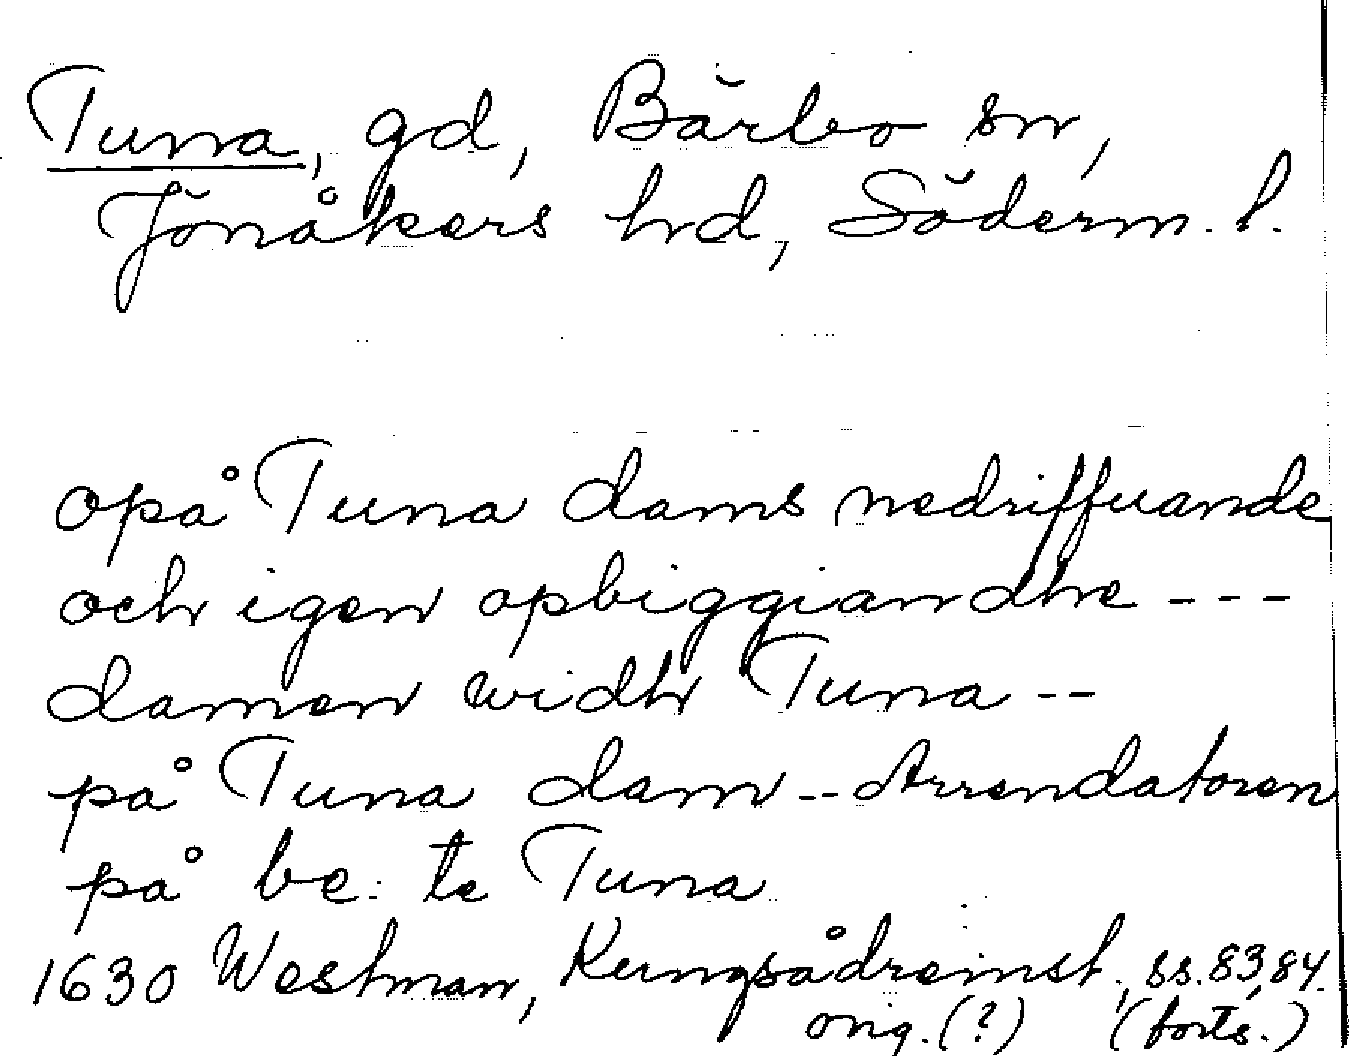 Tuna, gd, Bärbo sn,
Jönåkers hd, Söderm. l.
opå Tuna dams nedriffuande
och igen opbiggiandhe ---
damen widh Tuna --
på Tuna dam -- Arrendatoren
på be:te Tuna
1630 Westman, Kungsådreinst., ss. 83, 84.
orig. (?) (forts.)